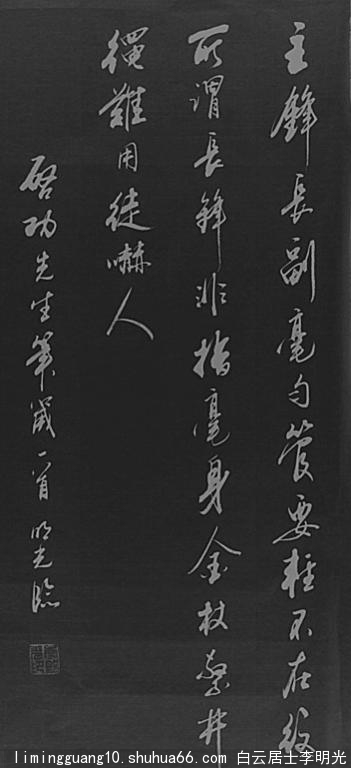 主鋒長副毫勻管要輕不在紋
所謂長鋒非指毫身金杖繫井
繩難用徒嚇人
啓功先生筆箴一首 明光臨
limingguang10.shuhua66.com 白云居士李明光